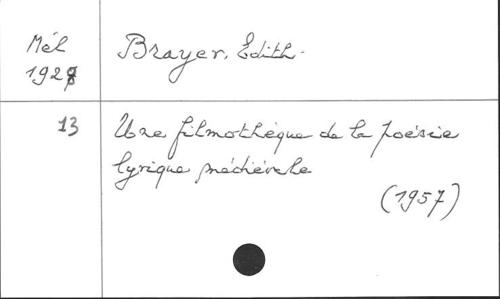 Mél
Brayer, Edith.
13
Une filmothèque de la poésie
lyrique médiévale
(1957)